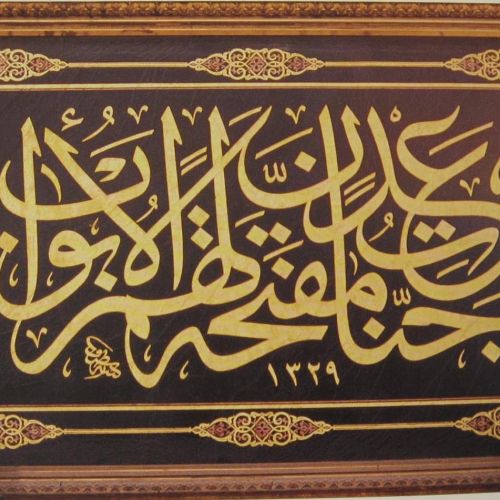 جنات عدن مفتحة لهم الأبواب
١٣٢٩